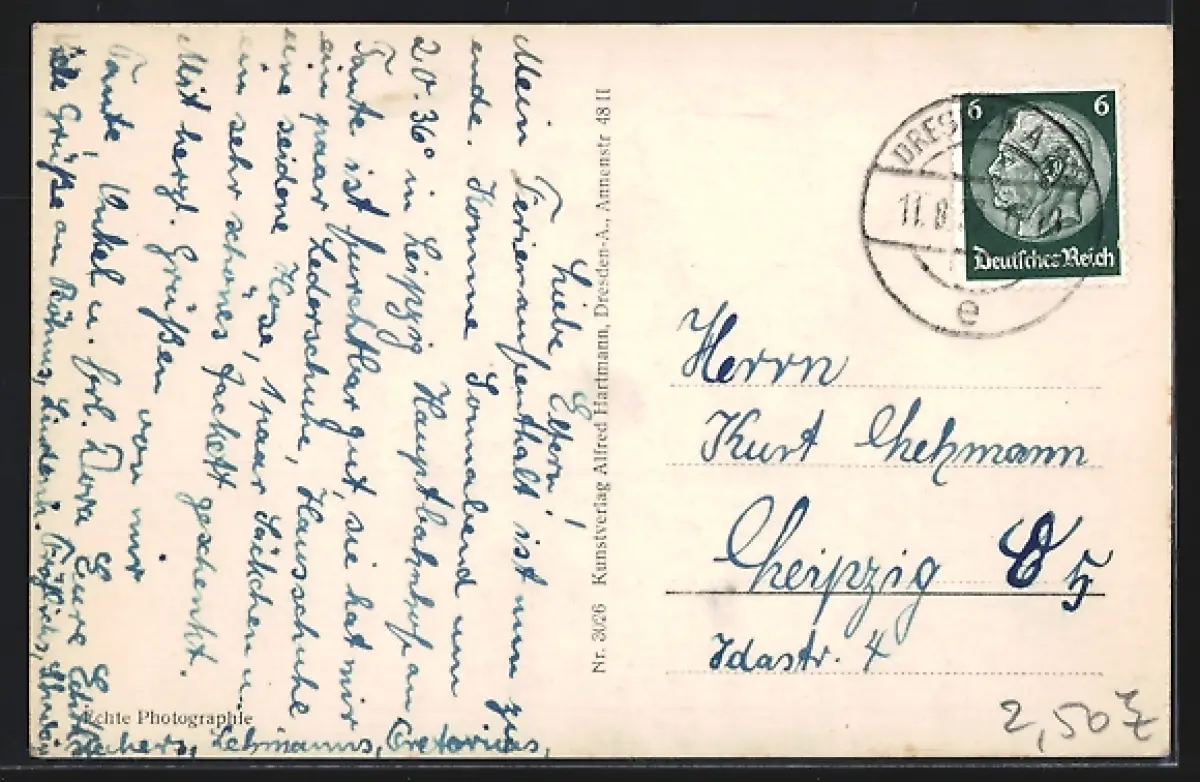 Liebe Eltern!
Mein Ferienaufenthalt ist nun zu
ende. Komme Sonnabend um
20.36° in Leipzig Hauptbahnhof an
Tante ist furchtbar gut, sie hat mir
ein paar Lederschuhe, Hausschuhe
eine seidene Hose, 1 paar Söckchen u.
ein sehr schönes Jackett geschenkt.
Mit herzl. Grüßen von mir
Tante Onkel u. Frl. Dora Eure
Viele Grüße an Röhms,
Lehmanns,
Echte Photographie
Nr. 3026 Kunstverlag Alfred Hartmann, Dresden-A., Annenstr 48 II
DRESDEN A
11. 8.
e
6 6
Deutsches Reich
Herrn
Kurt Lehmann
Leipzig O 5
Idastr. 4
2,50